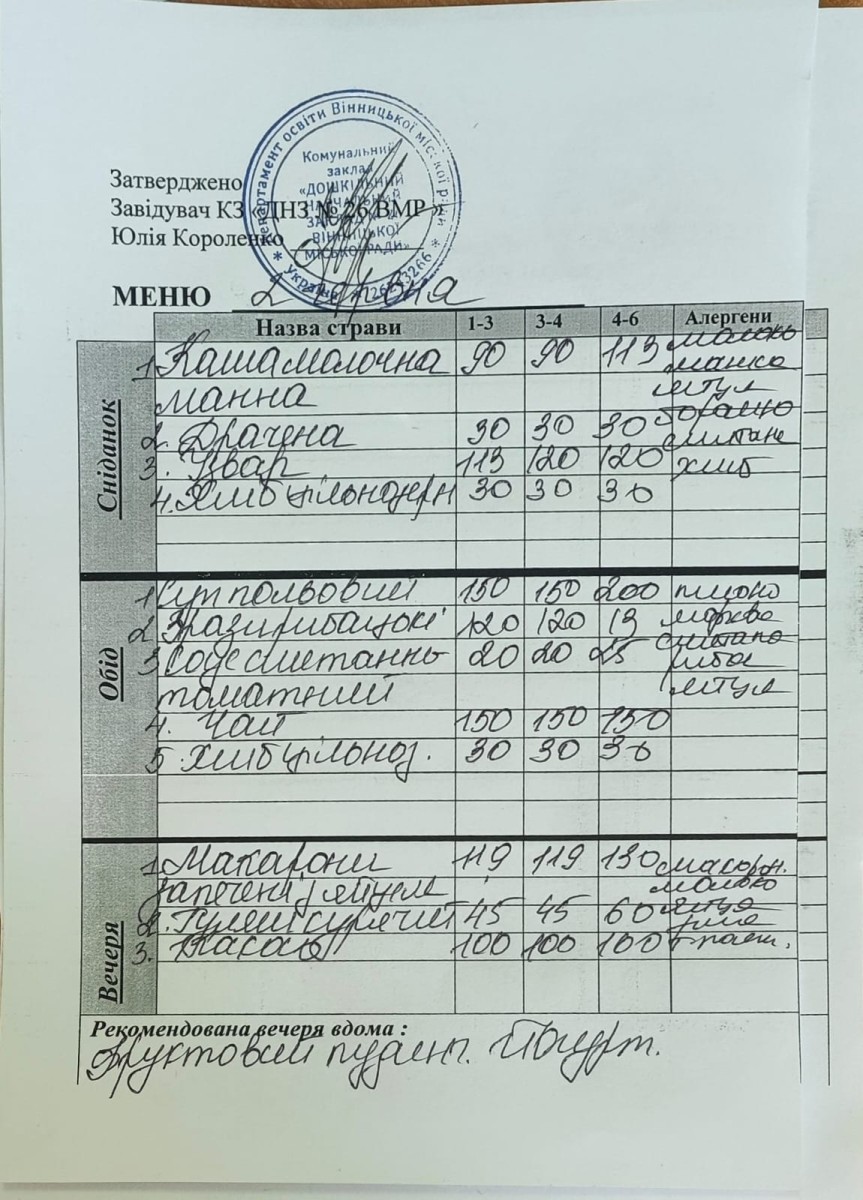 Департамент освіти Вінницької міської ради
Комунальний
заклад
«ДОШКІЛЬНИЙ
НАВЧАЛЬНИЙ
ЗАКЛАД №
ВІННИЦЬКОЇ
МІСЬКОЇ РАДИ»
* Україна *
Затверджено
Завідувач КЗ «ДНЗ № 26 ВМР»
Юлія Короленко
МЕНЮ 2 червня
Назва страви 1-3 3-4 4-6 Алергени
Сніданок
1. Каша молочна 90 90 113 молоко
манка
манна яйця
2. Драчена 30 30 30 сметана
3. Узвар 113 120 120 хліб
4. Хліб цільнозерн 30 30 30
Обід
1 Суп польовий 150 150 200 пшоно
2 Зрази рибацькі 120 120 13 морква
сметана
3 Соус сметанно 20 20 25 риба
томатний яйця
4. Чай 150 150 150
5 Хліб цільноз. 30 30 30
Вечеря
1. Макарони 119 119 130 макарон.
молоко
запечені з яйцем яйця
2. Гуляш курячий 45 45 60
3. Какао 100 100 100
Рекомендована вечеря вдома :
Фруктовий пудинг. Йогурт.